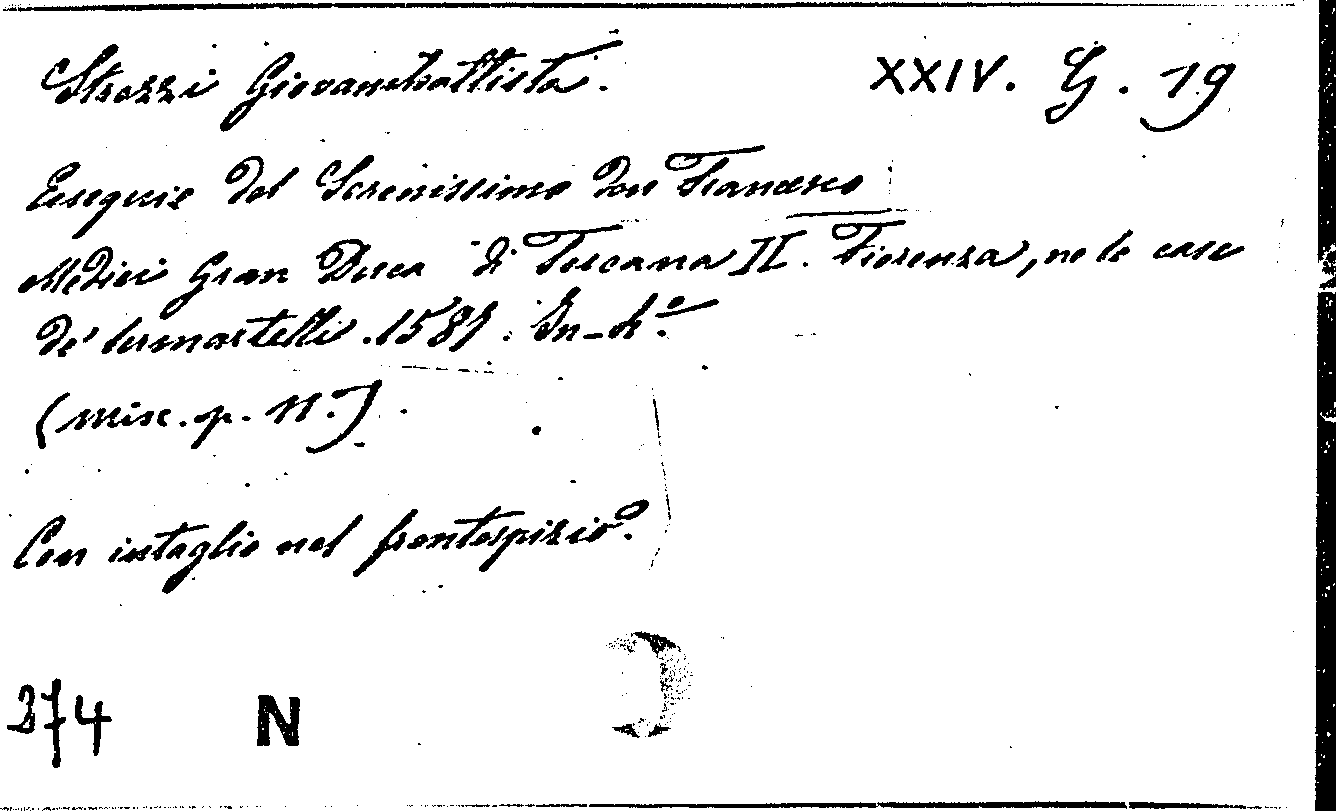 Strozzi Giovanbattista. XXIV. G. 19
Essequie del Serenissimo don Francesco
Medici Gran Duca di Toscana II. Fiorenza, ne le case
de' Sermartelli. 1587. In-4.º
(misc. p. n.º)
Con intaglio nel frontespizio.
374 N